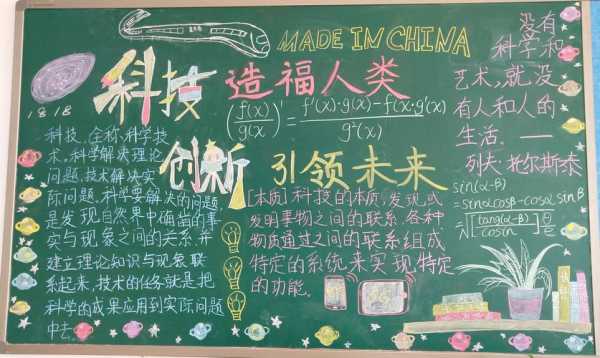 MADE IN CHINA
科技 造福人类
1818
(f(x)/g(x))' = f'(x)·g(x)-f(x)·g'(x)/g²(x)
创新 引领未来
科技，全称科学技
术，科学解决理论
问题，技术解决实
际问题，科学要解决的问题
是发现自然界中确凿的事
实与现象之间的关系，并
建立理论知识与现象联
系起来，技术的任务就是把
科学的成果应用到实际问题
中去。
[本质]科技的本质：发现或
发明事物之间的联系，各种
物质通过之间的联系组成
特定的系统来实现特定
的功能。
没有
科学和
艺术，就没
有人和人的
生活。——
列夫·托尔斯泰
sin(α-β)
=sinαcosβ-cosαsinβ